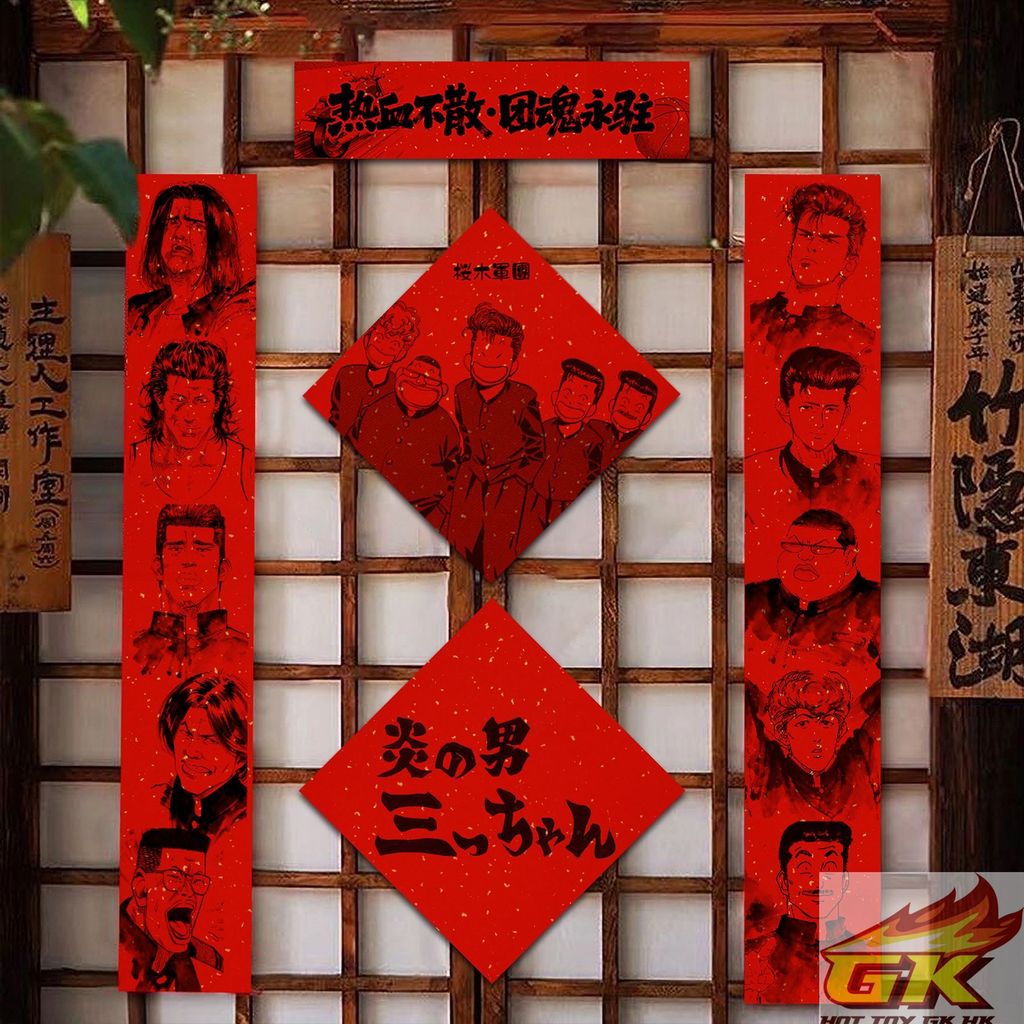 热血不散·团魂永驻
桜木軍團
炎の男
三っちゃん
主理人工作室
(周五周六)
始迢庚子年
竹隠東湖
GK
HOT TOY GK HK